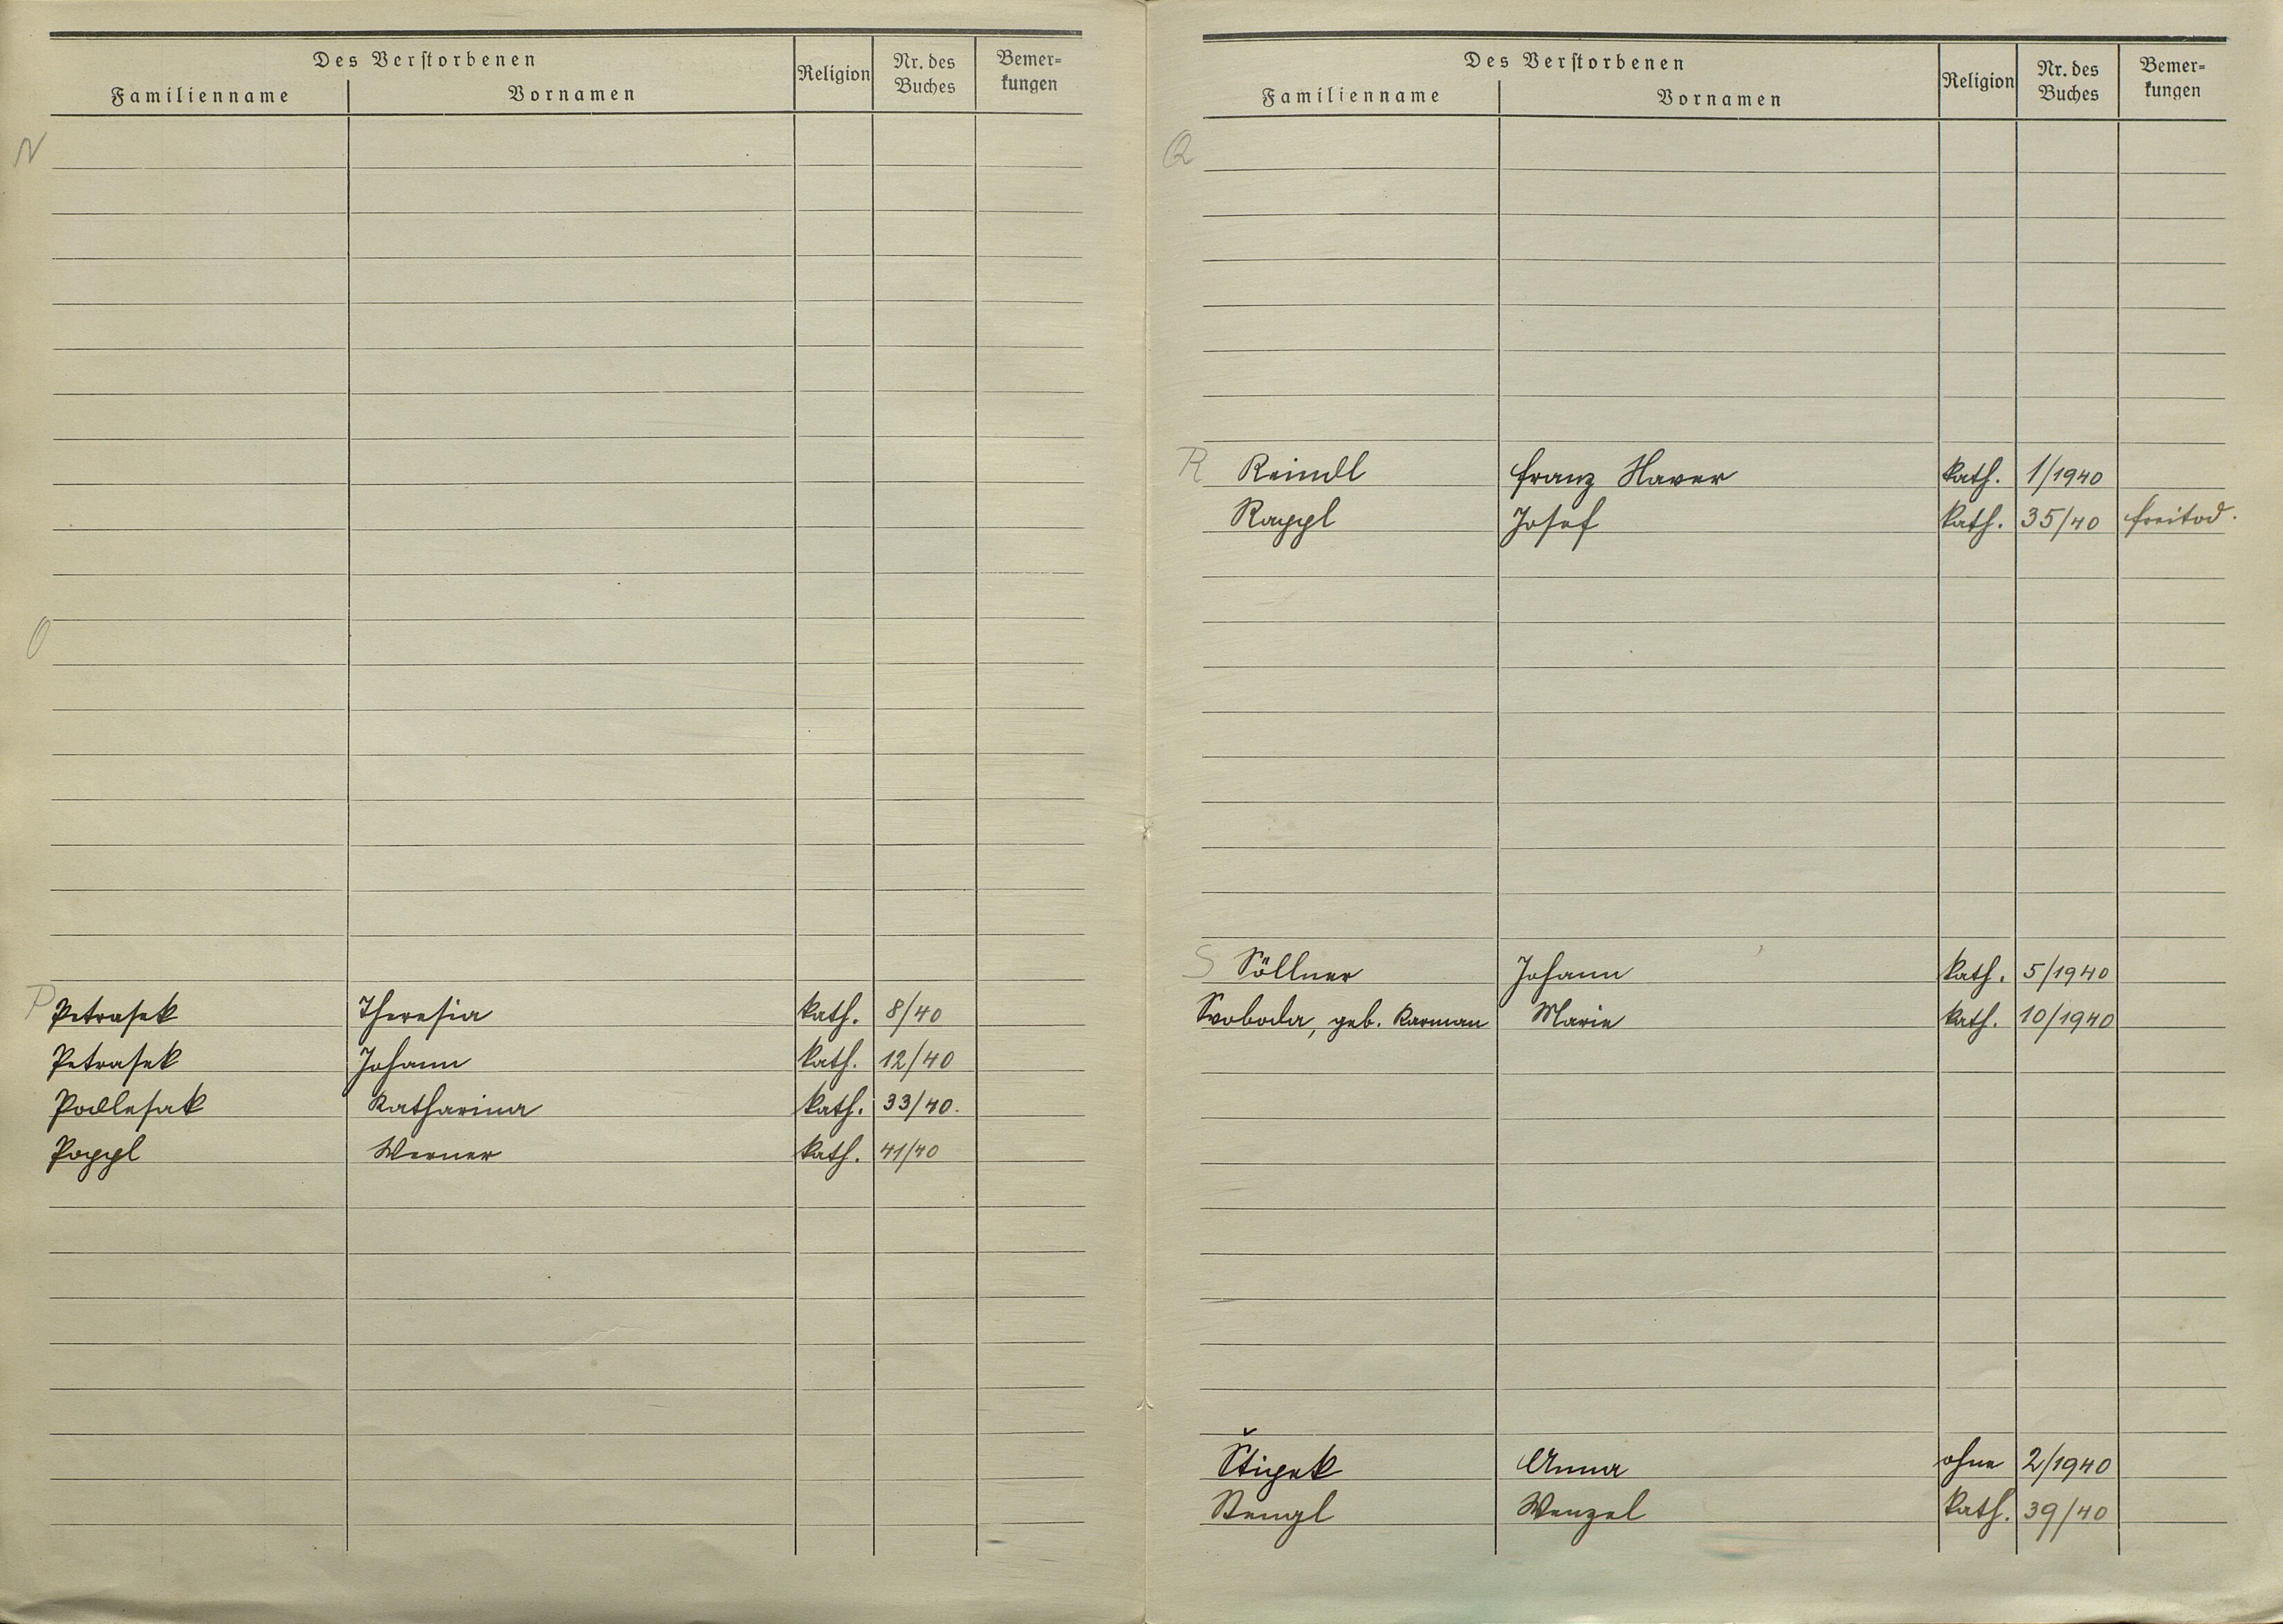 Des Verstorbenen
Familienname Vornamen Religion Nr. des Buches Bemerkungen
N
O
P Petrasek Theresia kath. 8/40
Petrasek Johann kath. 12/40
Podlesak Katharina kath. 33/40.
Poppl Werner kath. 41/40
Des Verstorbenen
Familienname Vornamen Religion Nr. des Buches Bemerkungen
Q
R Reindl Franz Xaver kath. 1/1940
Rappl Josef kath. 35/40 Freitod.
S Söllner Johann kath. 5/1940
Svoboda, geb. Karman Marie kath. 10/1940
Anna ohne 2/1940
Stengl Wenzel kath. 39/40